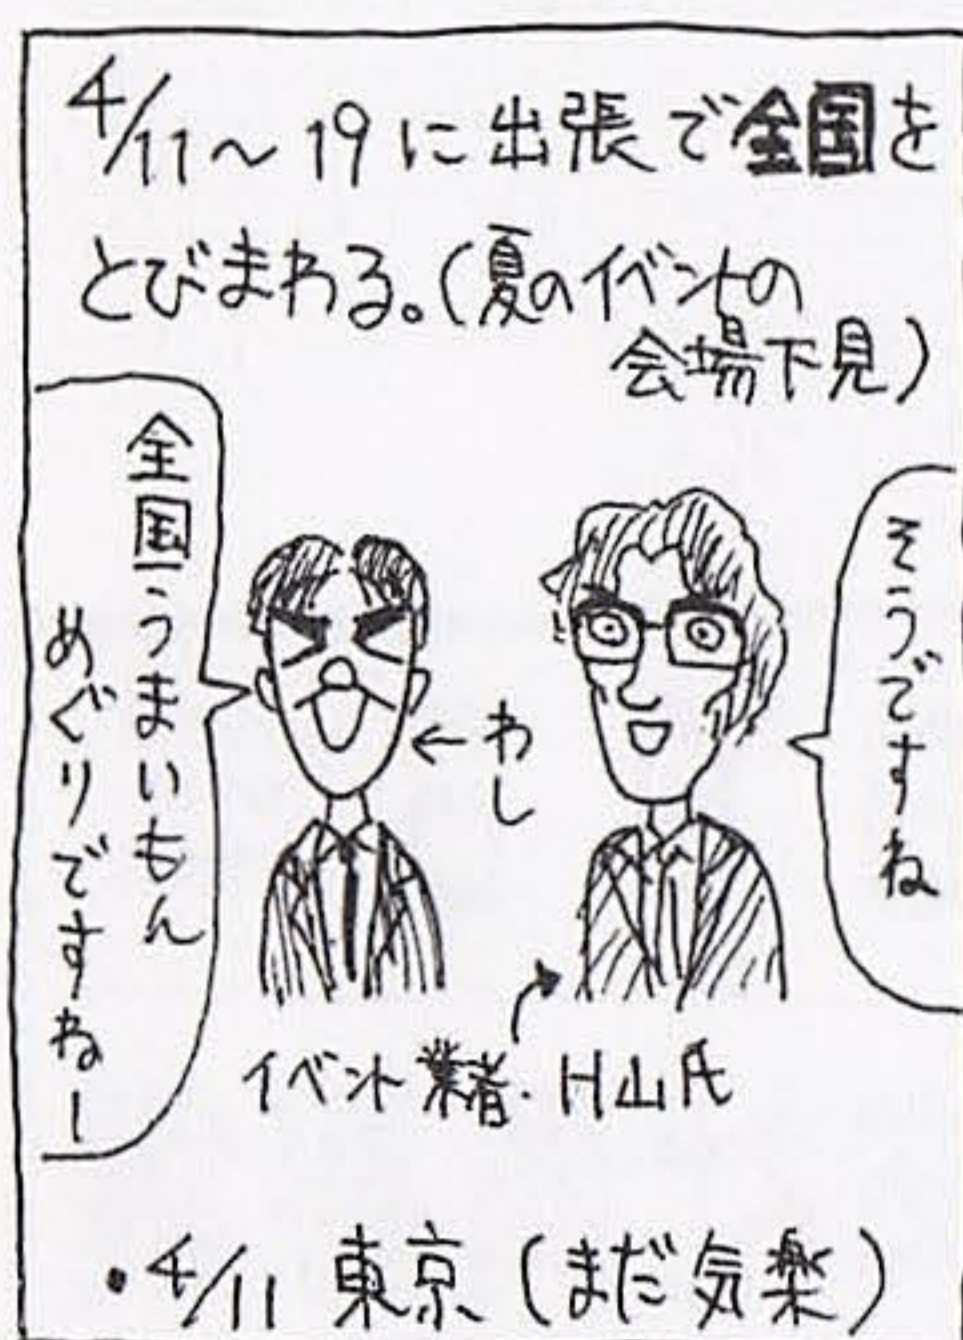 4/11〜19に出張で全国を
とびまわる。(夏のイベントの
会場下見)
全国うまいもん
めぐりですねー
←わし
そうですね
イベント業者・H山氏
・4/11 東京(まだ気楽)